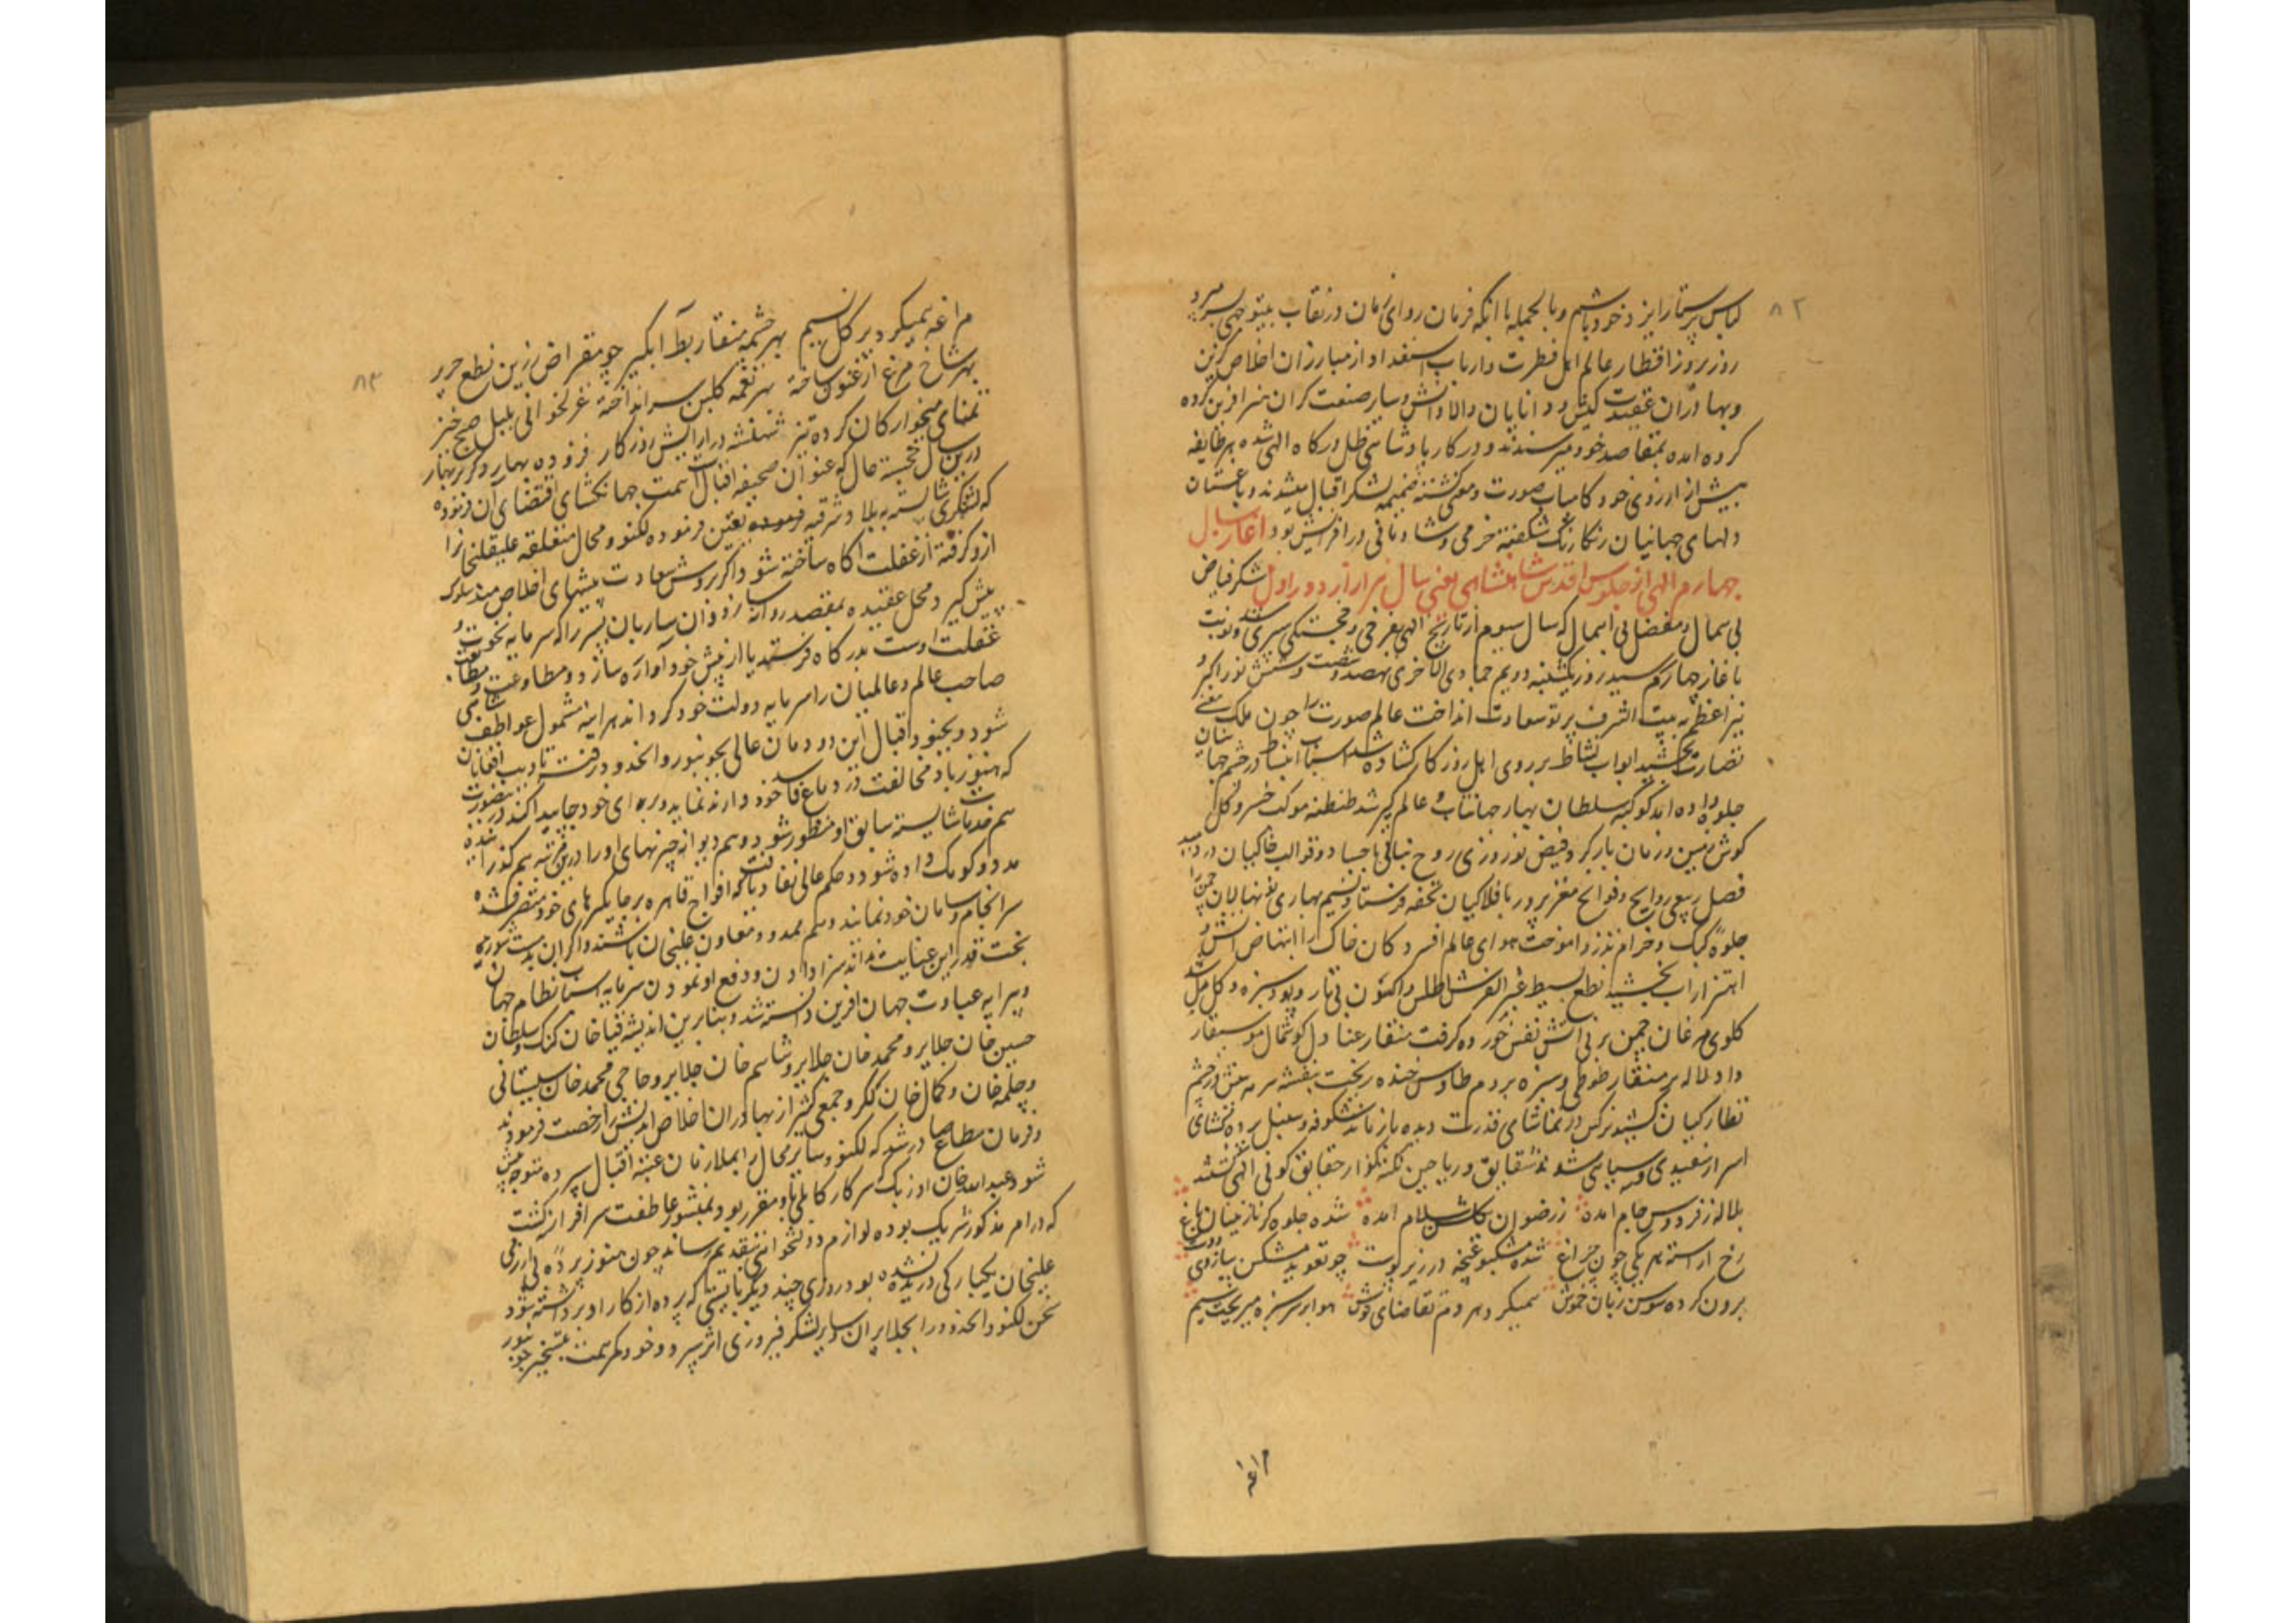 ۸۲
لباس پرستار ایزد خود باشم و بالجمله با انکه فرمان روای زمان در نقاب بیتوجهی بسر میبرد
روز بروز از اقطار عالم اهل فطرت و ارباب استعداد از مبارزان اخلاص کزین
و بهادران عقیدت کیش و دانایان والا دانش و سایر صنعت کران هنر افرین کرده
کرده امده بمقاصد خود میرسیدند و در کار پادشاهی ظل درکاه الهی شده هر طایفه
بیش از ارزوی خود کامیاب صورت و معنی کشته ضمیمه لشکر اقبال میشدند و باغستان
دلهای جهانیان رنکارنک شکفته خرمی و شادمانی در افزایش بود اغاز سال
چهارم الهی از جلوس اقدس شاهنشاهی یعنی سال تیر از دور اول شکر فیاض
بی همال و مفضل بی اهمال که سال سیوم از تاریخ الهی بفرخی و خجستکی سپری شد و نوبت
باغاز چهارم رسید روز یکشنبه دویم جمادی الاخری نهصد و شصت و شش نور اکبر و
نیر اعظم به بیت الشرف پرتو سعادت انداخت عالم صورت را چون ملک معنی
نضارت بخشید ابواب نشاط بر روی اهل روزکار کشاده شد اسباب انبساط در چشم جهانیان
جلوه داده اند کوکبه سلطان بهار جهانتاب و عالم کیر شد طنطنه موکب خسرو کل
کوش زمین و زمان باز کرد فیض نوروزی روح نباتی باجساد و قوالب خاکیان در دمید
فصل ربیعی روایح و فوایح مغزپرور بافلاکیان تحفه فرستاد نسیم بهاری نونهالان چمن را
جلوه کبک و خرام تذرو اموخت هوای عالم افسردکان خاک را انتهاض انس و
اهتزاز اب بخشید نطع بسیط غبرا لفرش اطلس و اکسون بی تار و پود سبزه و کل مزین شد
کلوی مرغان چمن بر نی اتش نفس خورده کرفت منقار عنادل کوشمال موسیقار
داد لاله بر منقار طوطی و سبزه بر دم طاوس خنده ریخت بنفشه سرمه عشق در چشم
نظارکیان کشید نرکس در تماشای قدرت دیده باز ماند شکوفه و سنبل پرده کشای
اسرار سفیدی و سیاهی شدند شقایق و ریاحین نکته کذار حقایق کونی الهی کشتند
بلاله ز فردوس جام امده ز رضوان بکلشن سلام امده شده جلوه کر نازنینان باغ
رخ اراسته هر یکی چون چراغ شده مشکبو غنچه در زیر پوست چو تعوید مشکین ببازوی دوست
برون کرده سوسن زبان خموش همیکرد هر دم تقاضای نوش هوا بر سر سبزه میریخت سیم
مراغه
۸۳
مراغه همیکرد بر کل نسیم بهر چشمه منقار بط آبکیر چو مقراض زرین بقطع حریر
بهر شاخ مرغ ارغنون ساخته بهر نغمه کلبن سر انداخته غزلخوانی بلبل صبح خیز
تمنای میخوارکان کرده تیز شهنشه در ارایش روزکار فزوده بهار دکر بر بهار
درین سال خجسته مال که عنوان صحیفه اقبال است همت جهانکشای اقتضای آن فرموده
که لشکری شایسته ببلاد شرقیه تعین فرموده لکنو و محال متعلقه علیقلیخانرا
ازو کرفته از غفلت اکاه ساخته شود اکر بروش سعادت پیشهای اخلاص مند سلوک
پیش کیرد محل عقیده بمقصد روانه سازد و ان ساربان پسر را که سرمایه نخوت و
غفلت اوست بدرکاه فرستد یا از پیش خود آواره سازد و مطاوعت و متابعت
صاحب عالم و عالمیان را سرمایه دولت خود کرداند هراینه مشمول عواطف شاهی
شود و بجنود اقبال این دودمان عالی بجونپور رواند و در فتنه تادیب افغانان
که هنوز باد مخالفت در دماغ فاسد خود دارند نماید و برای خود جا پیدا کند درینصورت
هم خدمات شایسته سابق او منظور شود و هم دیوانه چیزیهای او را درین مرتبه هم کذرانیده
مدد و کومک داده شود و حکم عالی نفاذ یافت که افواج قاهره بر جایکیرهای خود متصرف شده
سرانجام و سامان خود نمایند و هم ممد و معاون علیخان باشند و اکر ان بدمست شوریده
بخت قدر این عنایت نداند سزا دادن و دفع او نمودن سرمایه اسباب نظام جهان
و پیرایه عبادت جهان افرین دانسته شد و بنابرین اندیشه قیا خان کنک و سلطان
حسین خان جلایر و محمد خان جلایر و شاهم خان جلایر و حاجی محمد خان سیستانی
و چلمه خان و کمال خان ککر و جمعی کثیر از بهادران اخلاص اندیش را رخصت فرمودند
و فرمان مطاع صادر شد که لکنو و سایر محال را بملازمان عتبه اقبال سپرده متوجه پیش
شود و عبدالله خان اوزبک سرکار کالپی باو مقرر بود بمنشور عاطفت سرافراز کشت
که در امر مذکور شریک بوده لوازم دولتخواهی بتقدیم رساند چون هنوز پرده بی ازرمی
علیخان یکبارکی دریده نشده بود روزی چند دیکر بایستی که پرده از کار او برداشته شود
لکنو و الحدود را بجلایران و سایر لشکر فیروزی اثر سپرد و خود کمر همت بتسخیر جونپور